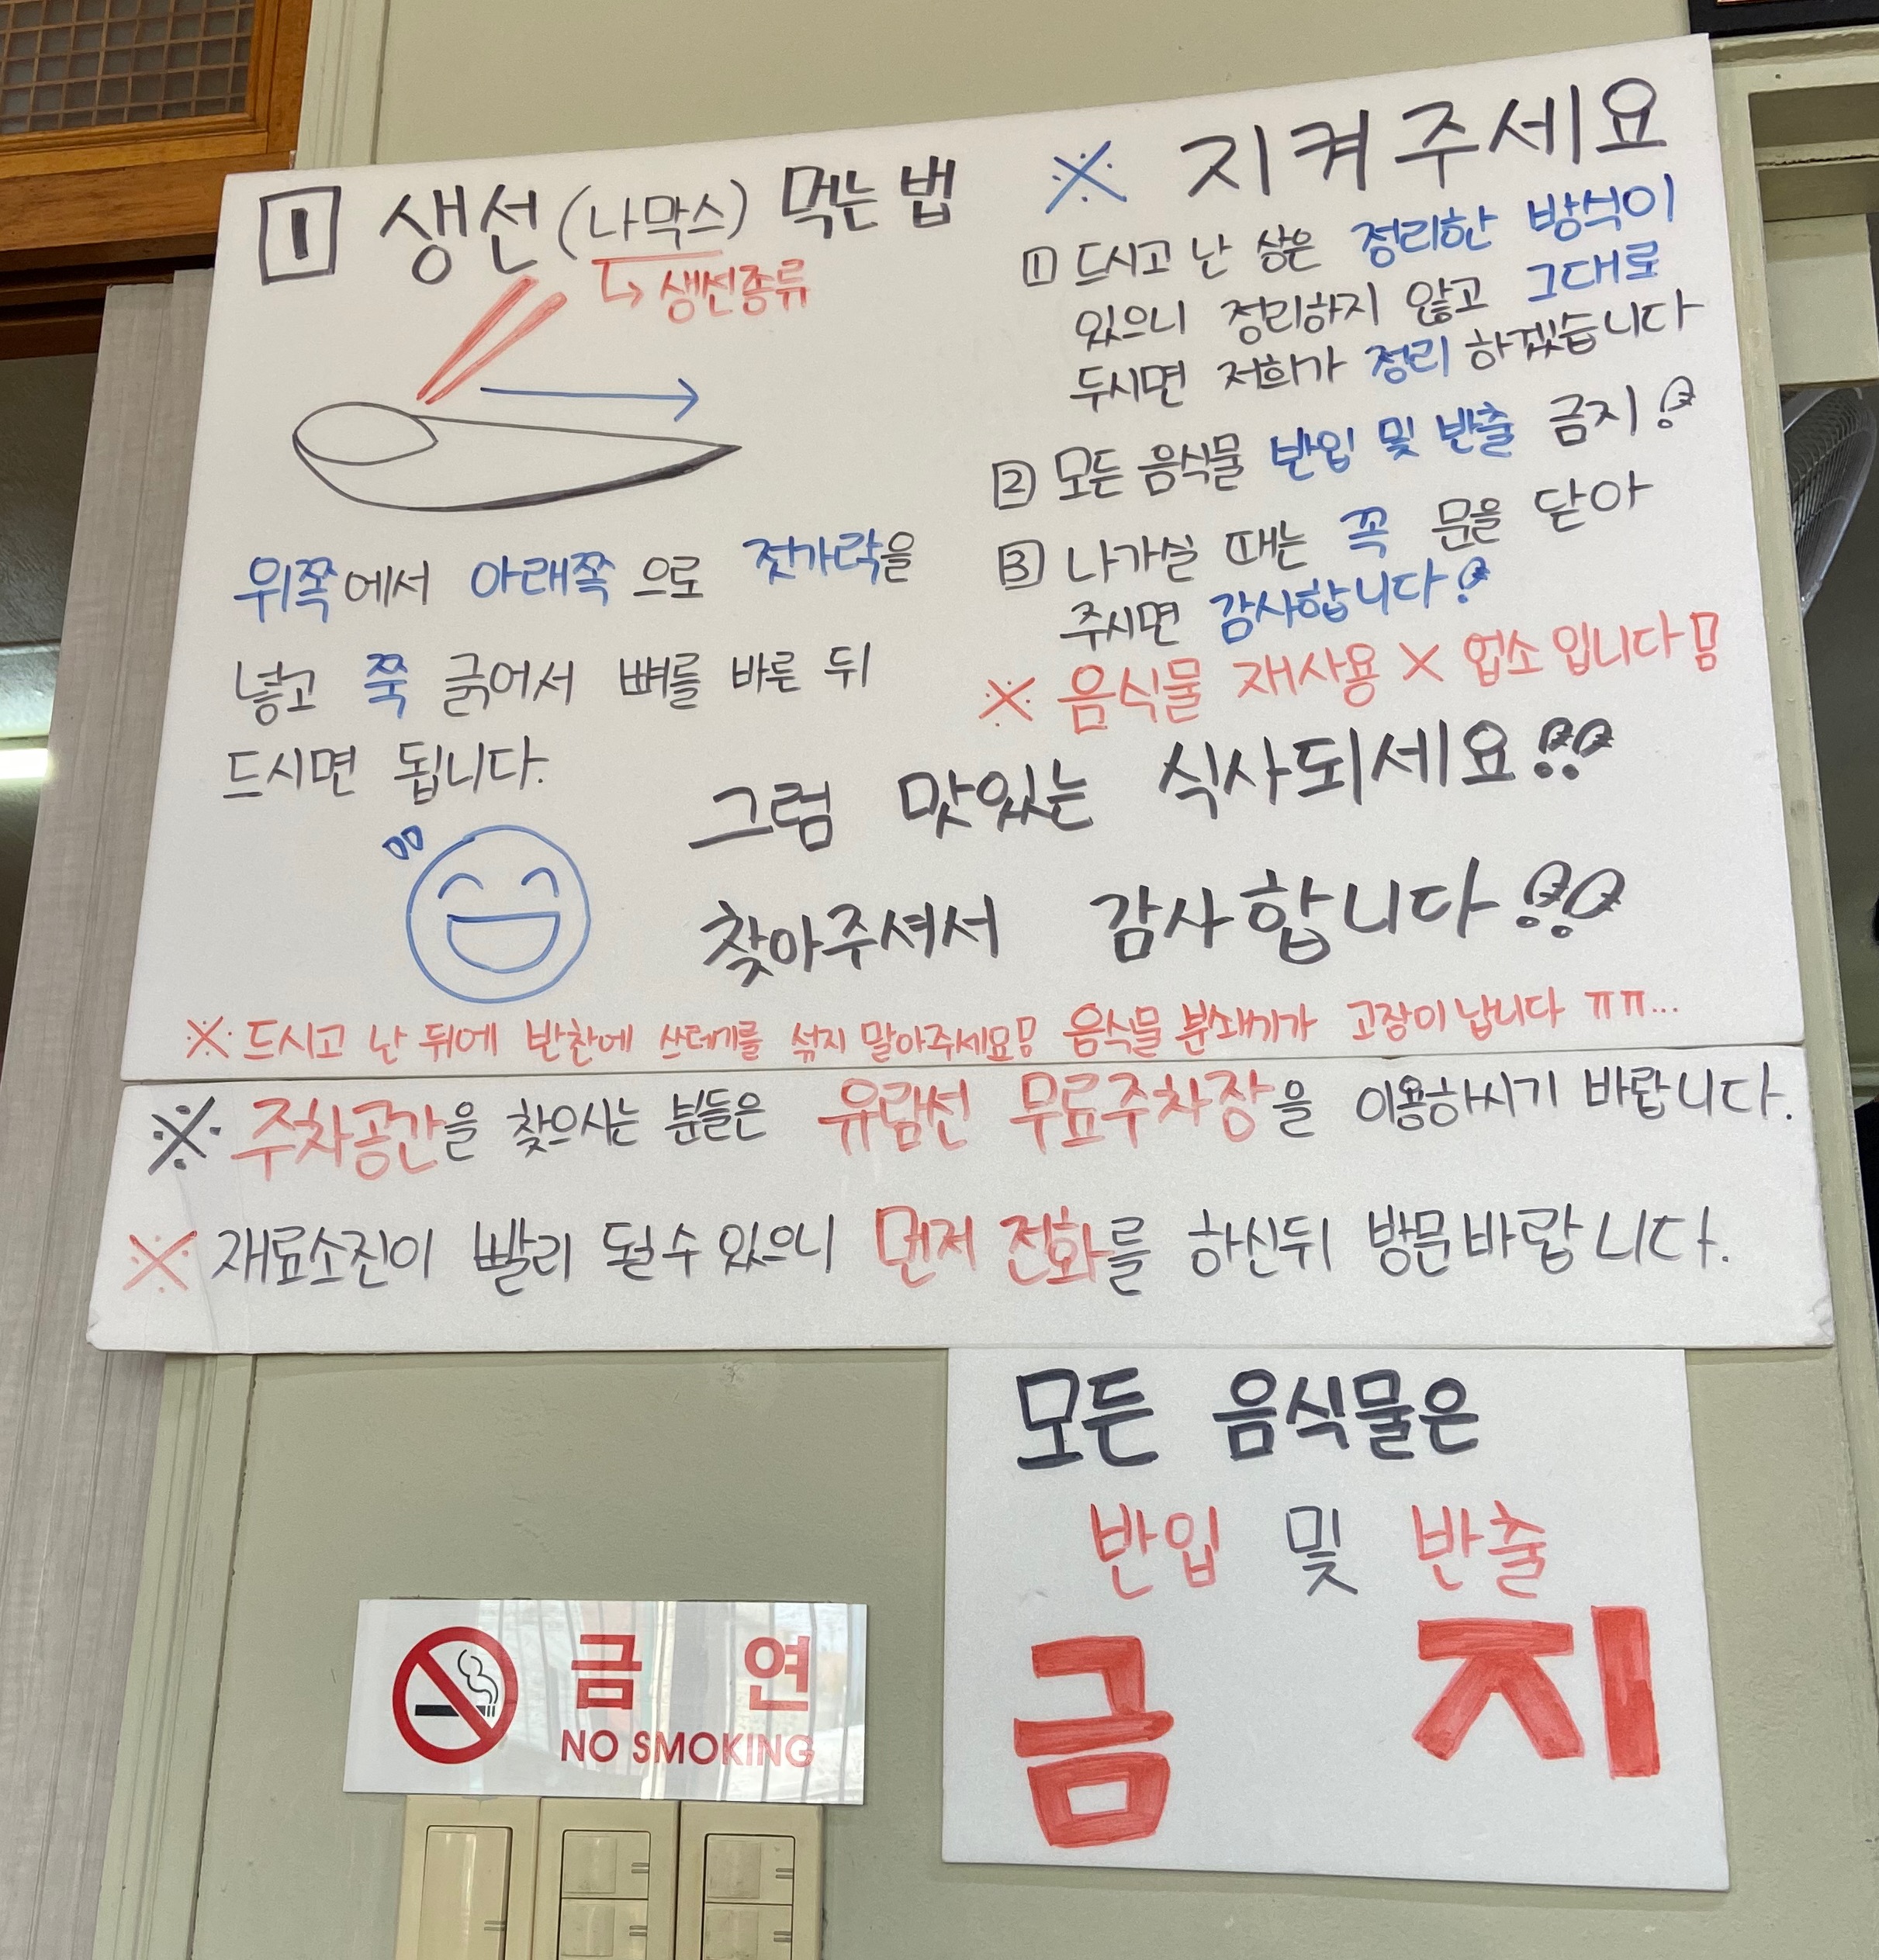 1 생선(나막스) 먹는 법
↳ 생선종류
위쪽에서 아래쪽으로 젓가락을
넣고 쭉 긁어서 뼈를 바른 뒤
드시면 됩니다.
※ 지켜주세요
1 드시고 난 상은 정리한 방식이
있으니 정리하지 않고 그대로
두시면 저희가 정리 하겠습니다
2 모든 음식물 반입 및 반출 금지!
3 나가실 때는 꼭 문을 닫아
주시면 감사합니다!
※ 음식물 재사용 X 업소입니다!!
그럼 맛있는 식사되세요!!
찾아주셔서 감사합니다!!
※ 드시고 난 뒤에 반찬에 쓰레기를 섞지 말아주세요!! 음식물 분쇄기가 고장이 납니다 ㅠㅠ...
※ 주차공간을 찾으시는 분들은 유람선 무료주차장을 이용하시기 바랍니다.
※ 재료소진이 빨리 될수 있으니 먼저 전화를 하신뒤 방문바랍니다.
모든 음식물은
반입 및 반출
금지
금연
NO SMOKING